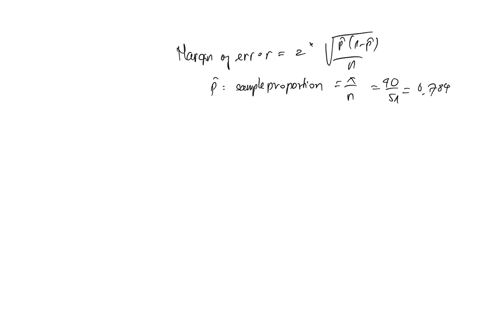 Margin of error = z* √(p̂(1-p̂)/n)
p̂ : sample proportion = x/n = 40/51 = 0.784